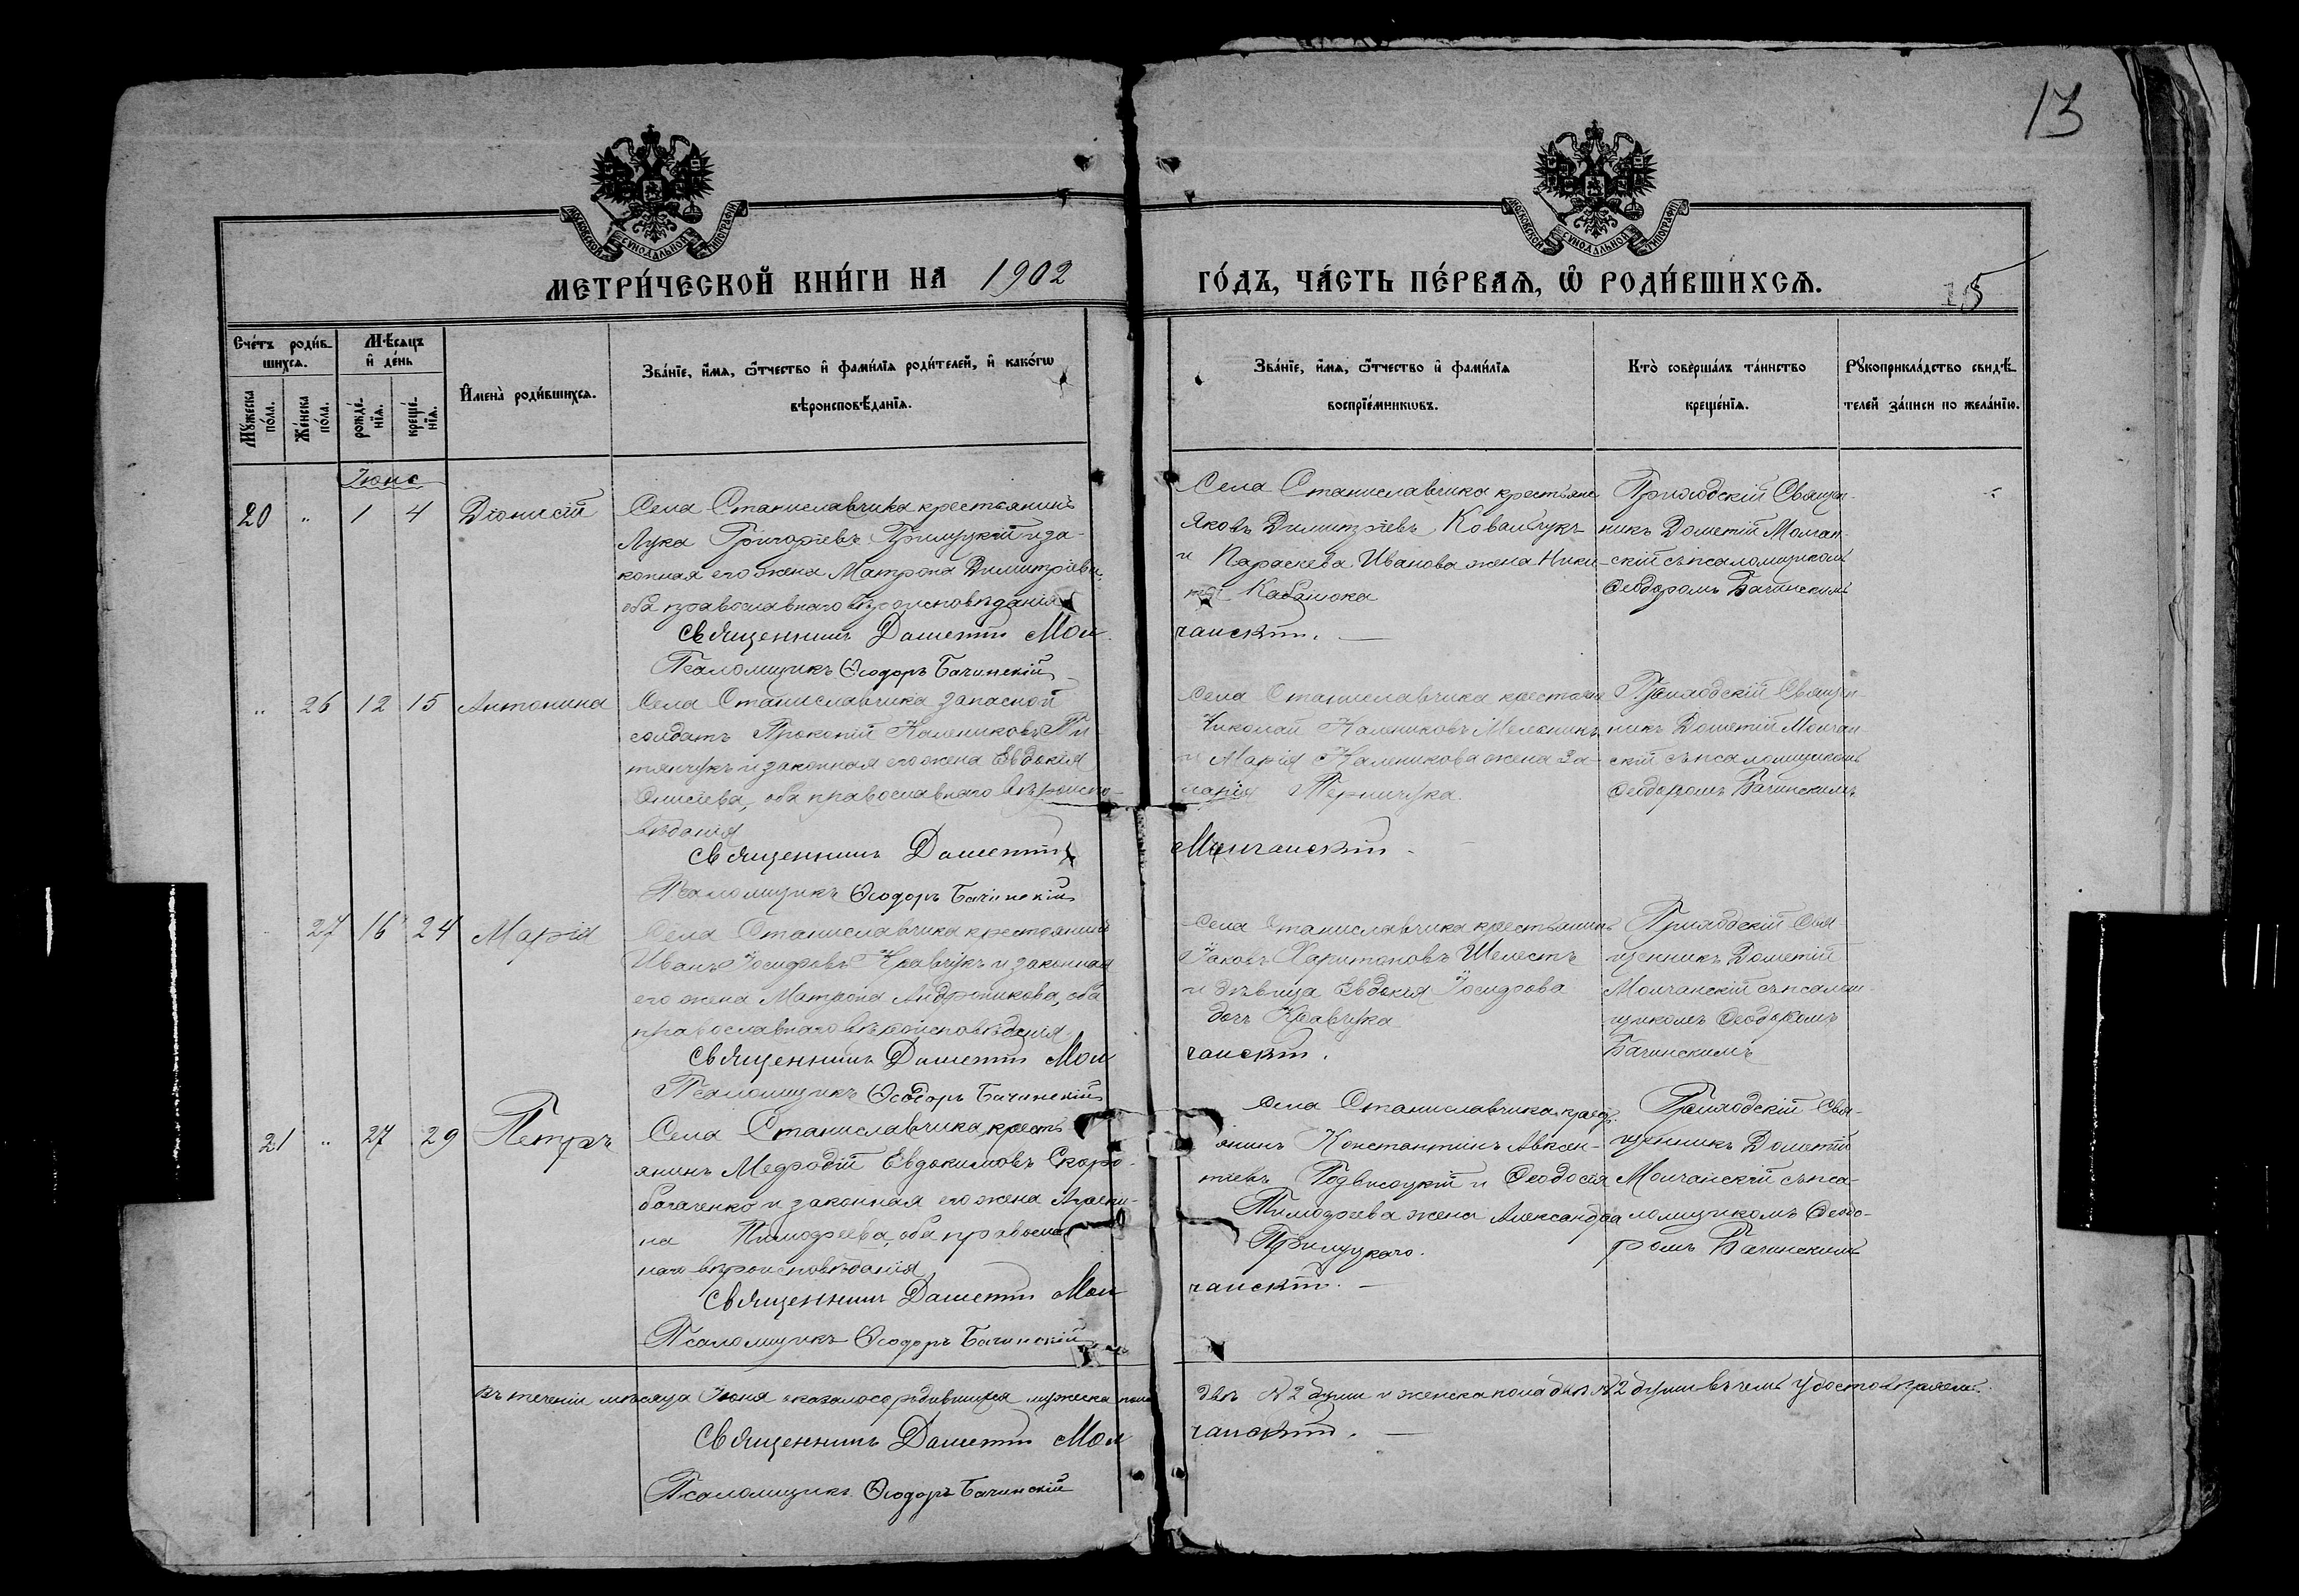 13
МОСКОВСКОЙ СУНОДАЛЬНОЙ ТИПОГРАФІИ
МОСКОВСКОЙ СУНОДАЛЬНОЙ ТИПОГРАФІИ
МЕТРИ́ЧЕСКОЙ КНИ́ГИ НА 1902
ГО́ДЪ, ЧА́СТЬ ПЕ́РВАѦ, Ѡ҆ РОДИ́ВШИХСѦ.
15
Сче́тъ роди́в-
шихсѧ.
Мѣ́сѧцъ
и҆ де́нь
Мꙋ́жеска
по́ла.
Же́нска
по́ла.
рожде́-
нїѧ.
креще́-
нїѧ.
И҆мена̀ роди́вшихсѧ.
Зва́нїе, и҆́мѧ, ѻ҆́тчество и҆ фами́лїѧ роди́телей, и҆ како́гѡ
вѣроисповѣ́данїѧ.
Зва́нїе, и҆́мѧ, ѻ҆́тчество и҆ фами́лїѧ
воспрїе́мникѡвъ.
Кто̀ соверша́лъ та́инство
креще́нїѧ.
Рꙋкоприкла́дство свидѣ́-
телей за́писи по жела́нїю.
Іюнь
20 " 1 4 Діонисій
Села Станиславчика крестьянинъ
Лука Григоріевъ Прилуцкій и за-
конная его жена Матрона Димитріева,
оба православнаго вѣроисповѣданія
Священникъ Дометій Мол-
Псаломщикъ Ѳеодоръ Бачинскій
Села Станиславчика крестьяне
Яковъ Димитріевъ Ковальчукъ
и Параскева Иванова жена Ники-
ты Кабанюка
чанскій.
Приходскій Священ-
никъ Дометій Молчан-
скій съ псаломщикомъ
Ѳеодоромъ Бачинскимъ
" 26 12 15 Антонина
Села Станиславчика запасной
солдатъ Прокопій Калениковъ
и законная его жена Евдокія
оба православнаго вѣроиспо-
вѣданія
Священникъ Дометій
Псаломщикъ Ѳеодоръ Бачинскій
Села Станиславчика крестьяне
Николай Калениковъ Мельникъ
и Марія Каленикова жена За-
харія
Молчанскій
Приходскій Священ-
никъ Дометій Молчан-
скій съ псаломщикомъ
Ѳеодоромъ Бачинскимъ
27 16 24 Марія
Села Станиславчика крестьянинъ
Иванъ Іосифовъ Кравчукъ и законная
его жена Матрона Андроникова, оба
православнаго вѣроисповѣданія
Священникъ Дометій Мол-
Псаломщикъ Ѳеодоръ Бачинскій
Села Станиславчика крестьянинъ
Іаковъ Харитоновъ Шелестъ
и дѣвица Евдокія Іосифова
дочь Кравчука
чанскій.
Приходскій Свя-
щенникъ Дометій
Молчанскій съ псалом-
щикомъ Ѳеодоромъ
Бачинскимъ
21 " 27 29 Петръ
Села Станиславчика кресть-
янинъ Меѳодій Евдокимовъ Скоро-
богаченко и законная его жена Агрепи-
на Тимоѳеева, оба православ-
наго вѣроисповѣданія
Священникъ Дометій Мол-
Псаломщикъ Ѳеодоръ Бачинскій
Села Станиславчика кресть-
янинъ Константинъ Авксен-
тіевъ Подвысоцкій и Ѳеодосія
Тимоѳеева жена Александра
Прилуцкаго.
чанскій.
Приходскій Свя-
щенникъ Дометій
Молчанскій съ пса-
ломщикомъ Ѳеодо-
ромъ Бачинскимъ
Въ теченіи мѣсяца Іюня оказалось родившихся мужеска пола
двѣ № 2 души и женска пола двѣ № 2 души въ чемъ удостовѣряемъ.
Священникъ Дометій Мол-
чанскій.
Псаломщикъ Ѳеодоръ Бачинскій